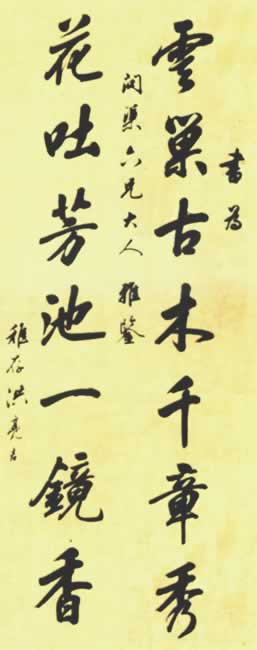 書為
雲巢古木千章秀
問渠六兄大人 雅鑒
花吐芳池一鏡香
稚存洪亮吉